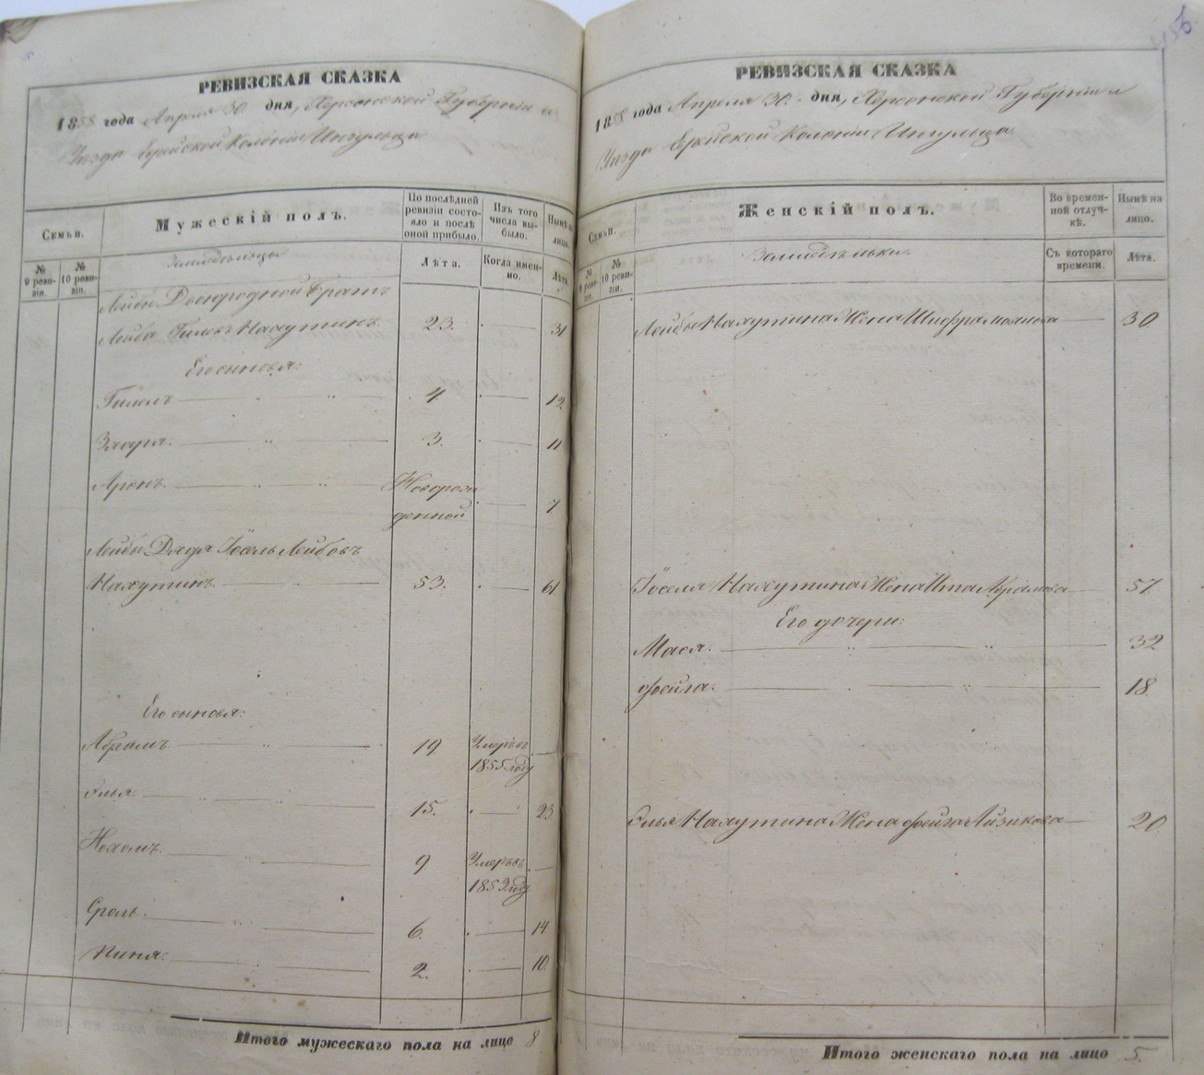 РЕВИЗСКАЯ СКАЗКА
1858 года Апреля 30 дня, Херсонской Губерніи и
Уезда Еврейской Колоніи Ингульца
Семьи.
№ 9 ревизіи.
№ 10 ревизіи.
Мужескій полъ.
По послѣдней ревизіи состояло и послѣ оной прибыло.
Изъ того числа выбыло.
Нынѣ на лицо.
Лѣта.
Когда именно.
Лѣта
Земледельцы
Лейбы Двоюродной братъ
Лейба Гилевъ Нахутинъ 23. 31
Его сыновья:
Гилель 4 12
3. 11
Аронъ. Новорожденной 7
Лейбы Дядя Іосель Лейбовъ
Нахутинъ 53. 61
Его сыновья:
Абрамъ 19 Умеръ въ 1855 году
Элья 15. 23
Нохомъ. 9 Умеръ въ году
Сроль. 6. 14
Пиня: 2. 10
Итого мужескаго пола на лицо 8
РЕВИЗСКАЯ СКАЗКА
1858 года Апреля 30 дня, Херсонской Губерніи и
Уезда Еврейской Колоніи Ингульца
Семьи.
№ 9 ревизіи.
№ 10 ревизіи.
Женскій полъ.
Во временной отлучкѣ.
Нынѣ на лицо.
Съ котораго времени.
Лѣта.
Земледельки
Лейбы Нахутина Жена Шифра 30
Іоселя Нахутина Жена Ита Абрамова 57.
Его дочери:
Мася. 32
Фейга. 18
Элья Нахутина Жена Фейга Айзикова 20
Итого женскаго пола на лицо 5.